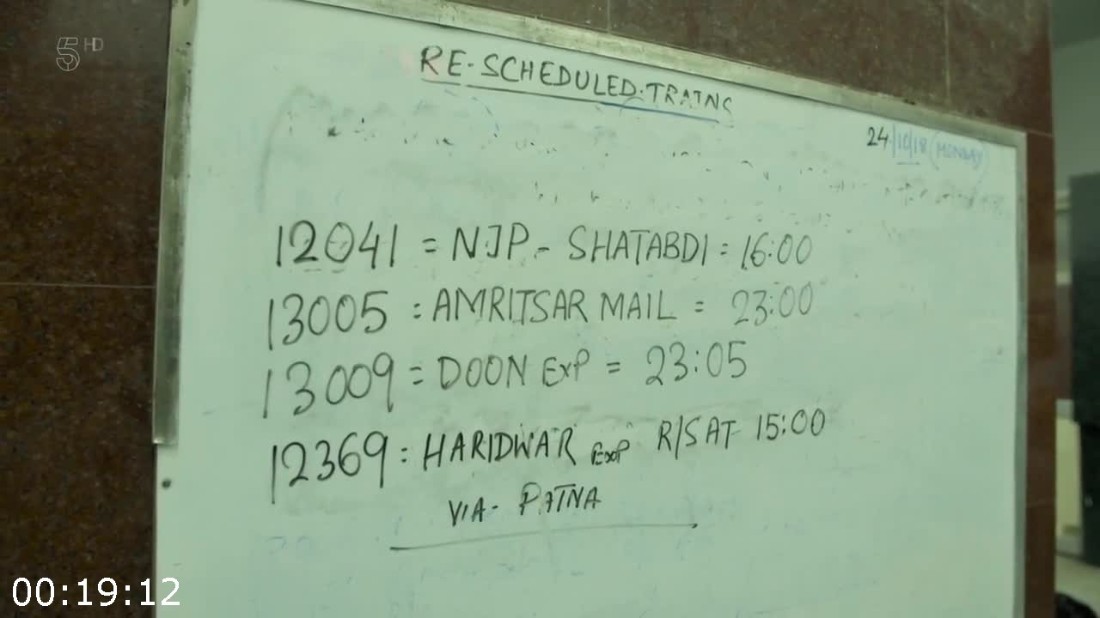 5 HD
RE-SCHEDULED.TRAINS
24/10/18 (MONDAY)
12041 = NJP - SHATABDI = 16:00
13005 : AMRITSAR MAIL = 23:00
13009 = DOON EXP = 23:05
12369 : HARIDWAR EXP R/SAT 15:00
VIA - PATNA
00:19:12